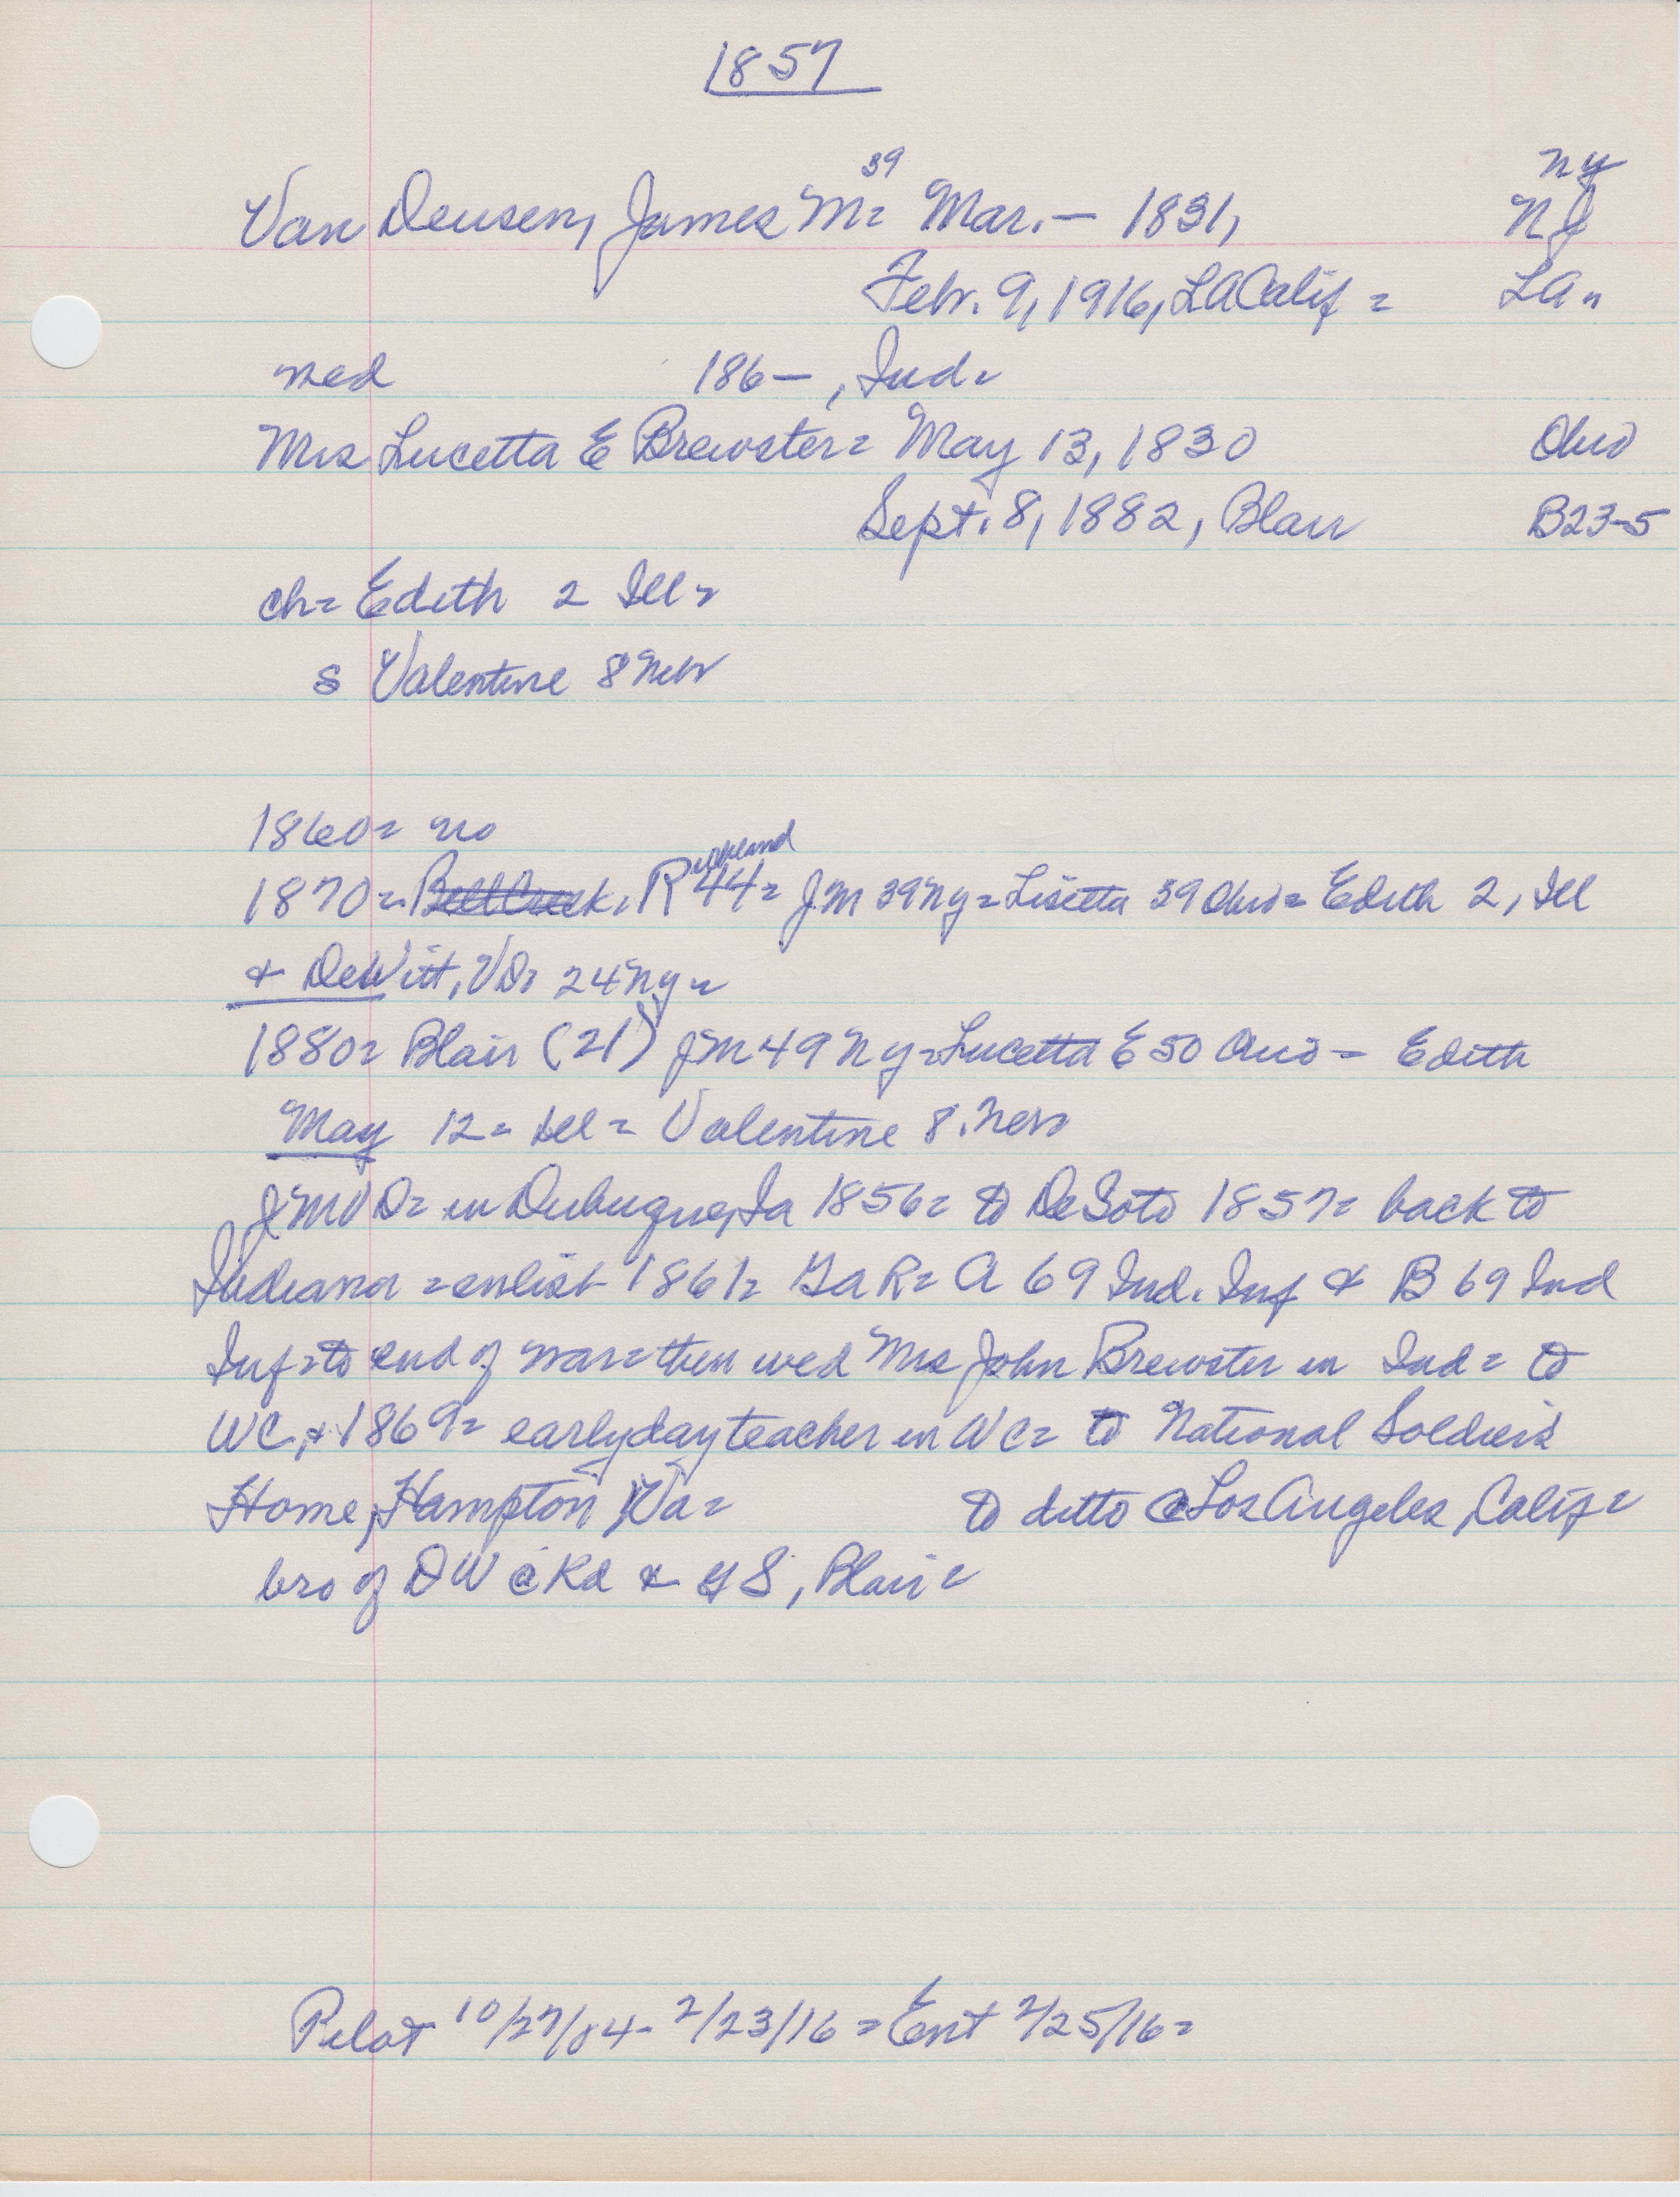 1857
39 ny
Van Deusen, James M= Mar. — 1831, NJ
Febr. 9, 1916, LA Calif = LA=
med 186—, Ind=
Mrs Lucetta E Brewster= May 13, 1830 Ohio
Sept. 8, 1882, Blair B23-5
ch= Edith 2 Ill=
s Valentine 8 Nebr
1860= no
1870= Bell Creek, Richland 44= JM 39 Ny= Lisetta 39 Ohio= Edith 2, Ill
& DeWitt, VD= 24 Ny=
1880= Blair (21) JM 49 Ny= Lucetta E 50 Ohio — Edith
May 12= Ill= Valentine 8. Nebr
JMVD= in Dubuque, Ia 1856= to DeSoto 1857= back to
Indiana = enlist 1861= GAR= A 69 Ind. Inf & B 69 Ind
Inf= to end of war= then wed Mrs John Brewster in Ind= to
WC, 1869= early day teacher in WC= to National Soldiers
Home, Hampton, Va= to ditto @ Los Angeles, Calif=
bro of DW @ Kd & GS, Blair=
Pilot 10/27/04- 2/23/16 = Ent 2/25/16=